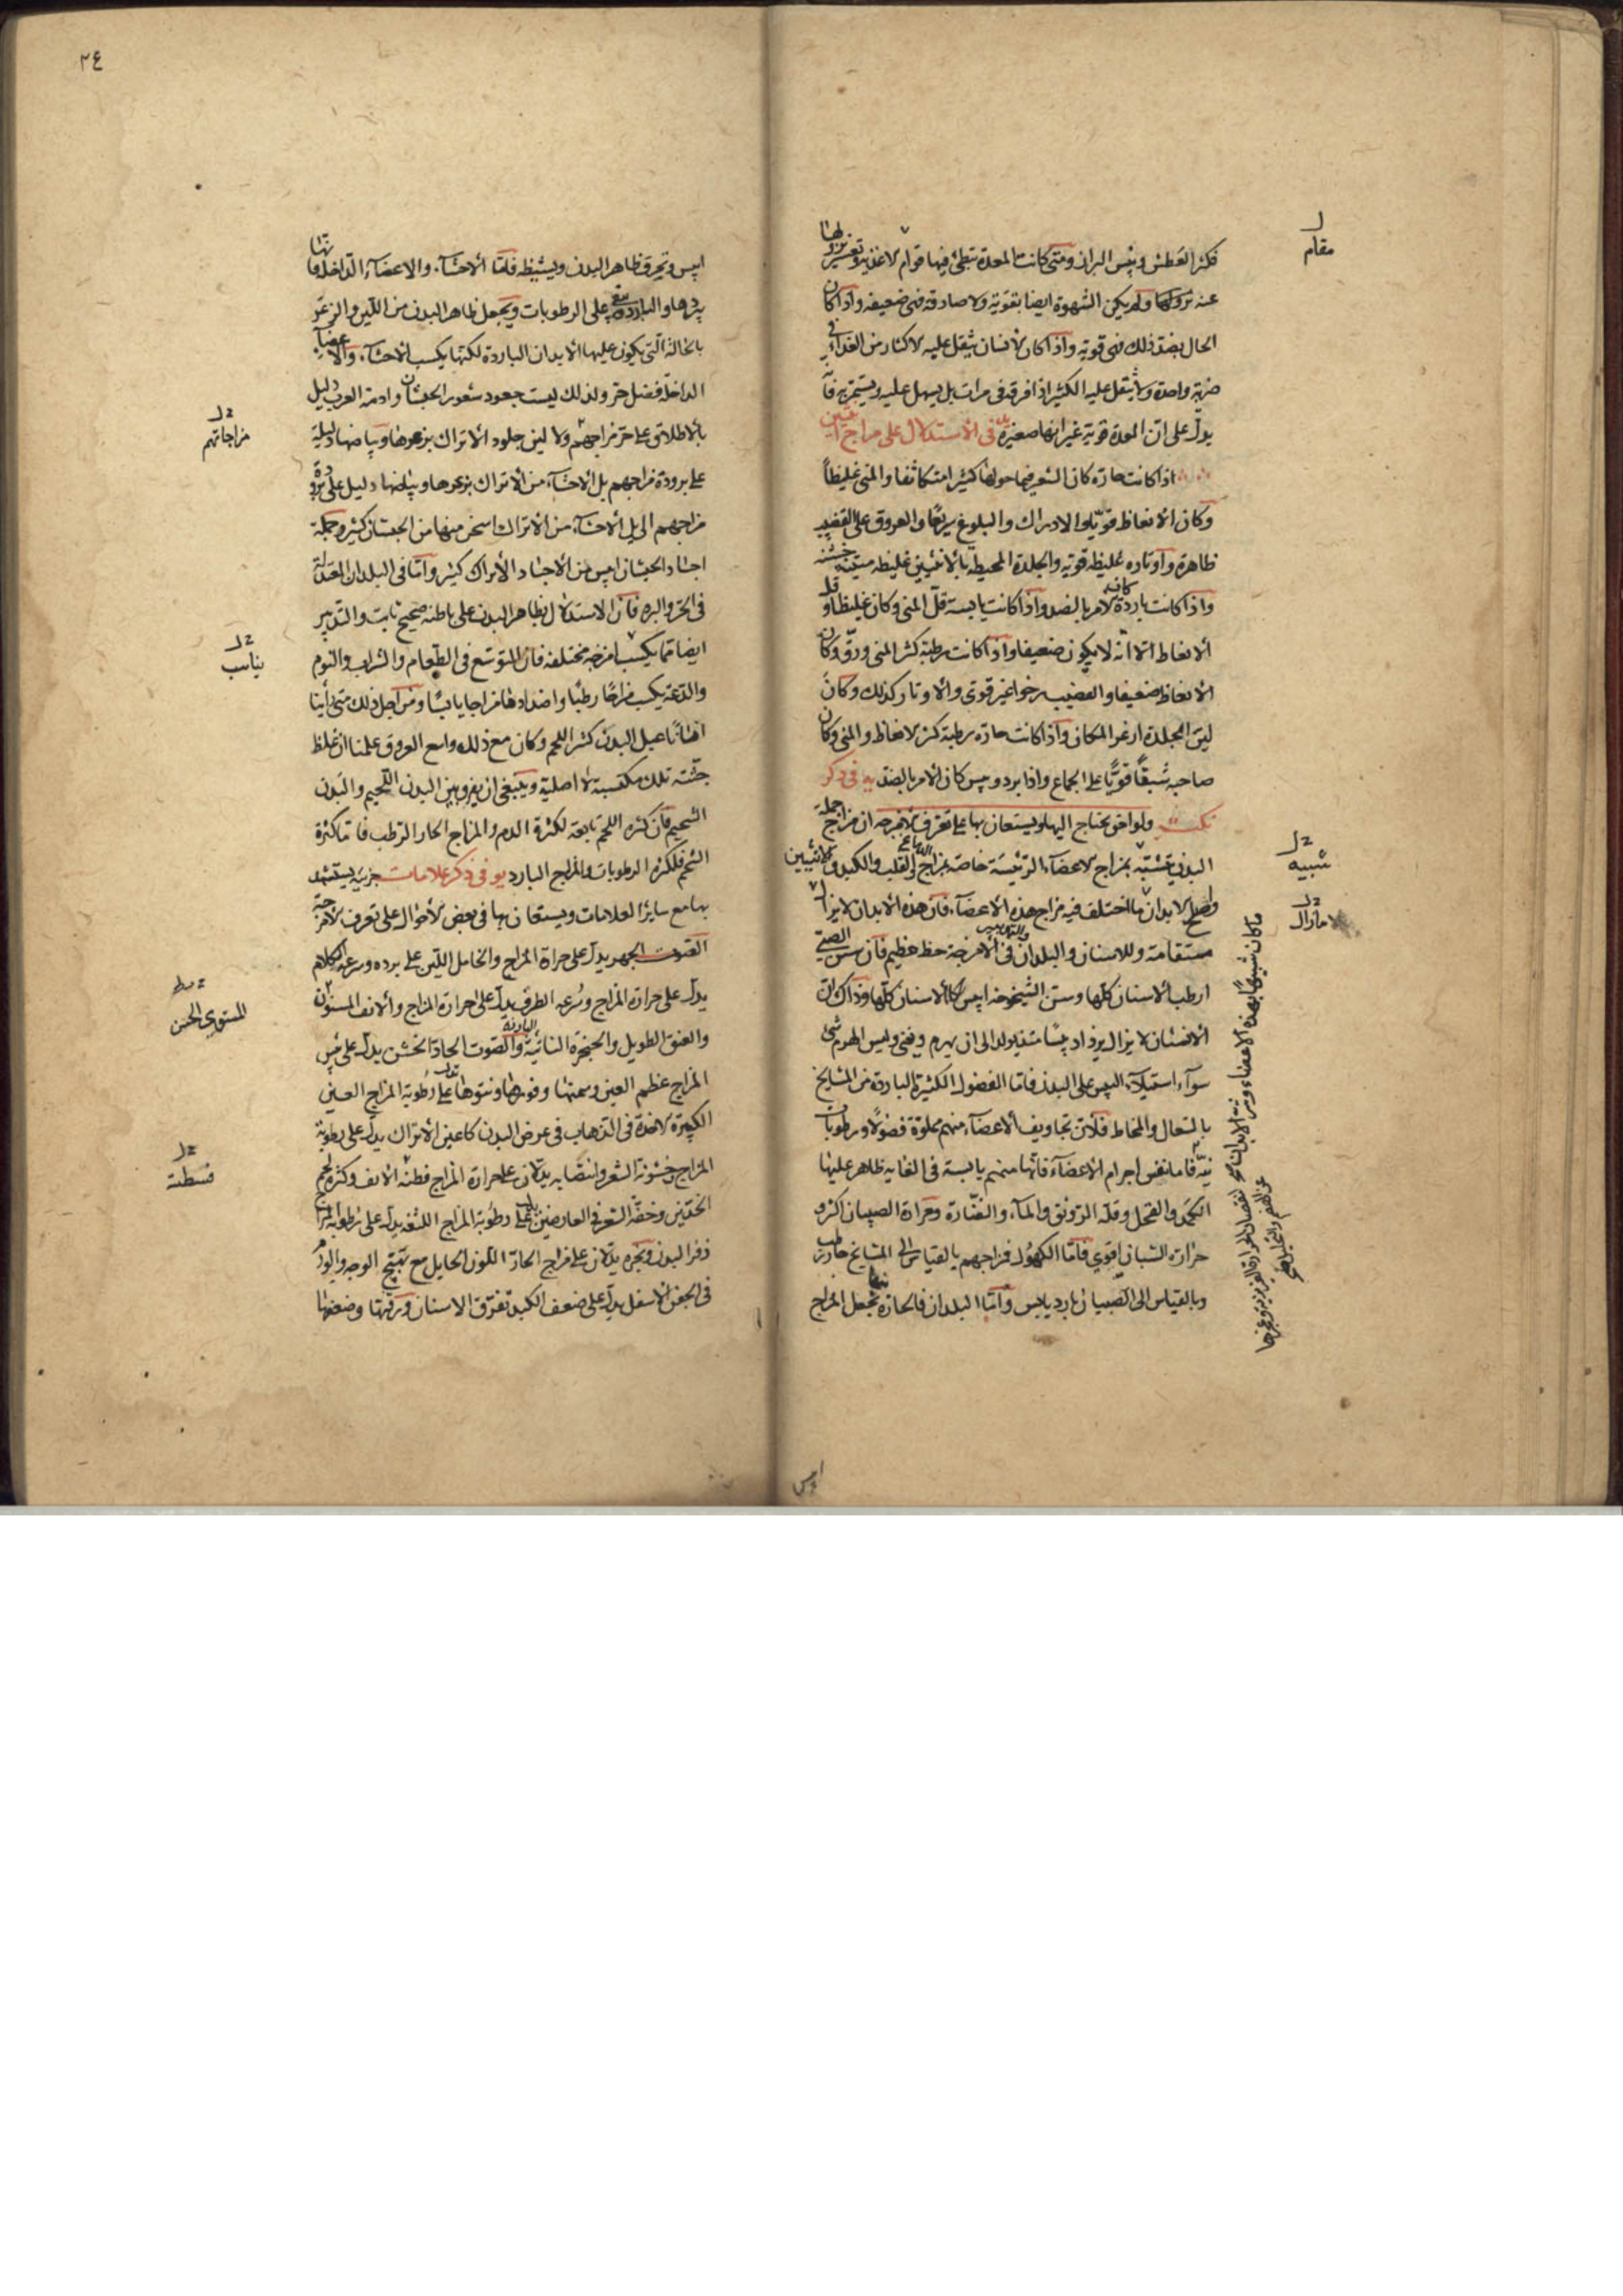 فكثر العطش ويبس البراز ومتى كانت المعدة تبطئ فيها قوام الاغذية وتعسر نزولها
عنه ولم يكن الشهوة ايضا بقوية ولا صادقة فهي ضعيفة واذا كان
الحال بضد ذلك فهي قوية واذا كان الانسان يثقل عليه الاكثار من الغذاء في
ضربة واحدة ولا يثقل عليه الكثير اذا فرقه في مرات بل يسهل عليه ويستمريه فانه
يدل على ان المعدة قوية غير انها صغيرة في الاستدلال على مزاج الانثيين
اذا كانت حارة كان الشعر فيما حولها كثيرا متكاثفا والمني غليظاً
وكان الانعاظ قويا والادراك والبلوغ سريعا والعروق على القضيب
ظاهرة واوتاره غليظة قوية والجلدة المحيطة بالانثيين غليظة متينة خشنة
واذا كانت باردة كان الامر بالضد واذا كانت يابسة قل المني وكان غليظا وقل
الانعاظ الا انه لا يكون ضعيفا واذا كانت رطبة كثر المني ورق وكان
الانعاظ ضعيفا والقضيب رخوا غير قوي والاوتار كذلك وكان
لين الجلدة ازعر المكان واذا كانت حارة رطبة كثر الانعاظ والمني وكان
صاحبه شبقاً قويًا على الجماع واذا برد ويبس كان الامر بالضد يه في ذكر
نكت ولواحق يحتاج اليها ويستعان بها على تعرف الامزجة ان مزاج جملة
البدن تشبه بمزاج الاعضاء الرئيسة خاصة بمزاج الدماغ القلب والكبد والانثيين
واصلح الابدان ما اختلف فيه مزاج هذه الاعضاء فان هذه الابدان لا يزال
مستقامة وللاسنان والبلدان والتدابير في الامزجة حظ عظيم فان سن الصبي
ارطب الاسنان كلها وسن الشيخوخة ايبس الاسنان كلها وذاك ان
الانسان لا يزال يزداد يبسًا منذ يولد الى ان يهرم ويفنى وليس الهرم شئ
سوآء استيلاء اليبس على البدن فاما الفضول الكثيرة الباردة من المشايخ
بالسعال والمخاط فلان تجاويف الاعضاء منهم مملوة فضولًا ورطوبات
نيّة فاما نفس اجرام الاعضاء فانها منهم يابسة في الغاية ظاهر عليها
الكمد والقحل وقلة الرونق والماء والغضارة وحرارة الصبيان اكثر و
حرارة الشبان اقوي فاما الكهول فمزاجهم بالقياس الى المشايخ حار رطب
وبالقياس الى الصبيان بارد يابس واما البلدان فالحارة منها تجعل المزاج
مقام
شبيه
لا مازال
ما كان شبيها بهذه الاعضاء
ايبس
٢٤
ايبس وتحرق ظاهر البدن ويشيطه فاما الاحشاء والاعضاء الداخلة فانها
يبردها والباردة تبقي على الرطوبات ويجعل ظاهر البدن من اللين والزعر
بالحالة التي يكون عليها الابدان الباردة لكنها يكسب الاحشاء والاعضاء
الداخلة فضل حر ولذلك ليست جعود شعور الحبشان وادمة العرب دليل
بالاطلاق على حر مزاجهم ولا لين جلود الاتراك بزعرها وبياضها دليلة
على برودة مزاجهم بل الاحشاء من الاتراك بزعرها وبياضها دليل على برودة
مزاجهم الى بل الاحشاء من الاتراك اسخن منها من الحبشان كثير وجملة
اجساد الحبشان ايبس من الاجساد الاتراك كثير واما في البلدان المعتدلة
في الحر والبرد فان الاستدلال بظاهر البدن على باطنه صحيح ثابت والتدبير
ايضا مما يكسب امزجة مختلفة فان المتوسع في الطعام والشراب والنوم
والدعة يكسب مزاجًا رطبًا واضدادها مزاجا يابسًا ومن اجل ذلك متى راينا
انسانًا عبل البدن كثير اللحم وكان مع ذلك واسع العروق علمنا ان غلظ
جثته تلك مكتسبة لا اصلية وينبغي ان يفرق بين البدن اللحيم والبدن
الشحيم فان كثرة اللحم تابعة لكثرة الدم والمزاج الحار الرطب فاما كثرة
الشحم فلكثرة الرطوبات والمزاج البارد يو في ذكر علامات جزئية يستشهد
بها مع ساير العلامات ويستعان بها في بعض الاحوال على تعرف الامزجة
الصوت الجهير يدل على حرارة المزاج والخامل اللين على برده وسرعة الكلام
يدل على حرارة المزاج وسرعة الطرف يدل على حرارة المزاج والانف المسنون
والعنق الطويل والحنجرة الناتية البارزة والصوت الحاد الخشن يدل على يبس
المزاج عظم العين وسمتها ونتوها تدل على رطوبة المزاج العين
الكبيرة الاخذة في الذهاب في عرض البدن كاعين الاتراك يدل على رطوبة
المزاج وخشونة الشعر وانتصابه يدلان على حرارة المزاج فطسة الانف وكثرة لحم
الخدين وخفة الشعر في العارضين يدل على رطوبة المزاج اللثغة يدل على رطوبة المزاج
ذفر البدن وبخره يدلان على مزاج الحار اللون الحايل مع تهبج الوجه والورم
في الجفن الاسفل يدل على ضعف الكبد تفرق الاسنان ورقتها وضعفها
مزاجاتهم
يناسب
المستوي الحسن
فسطنة